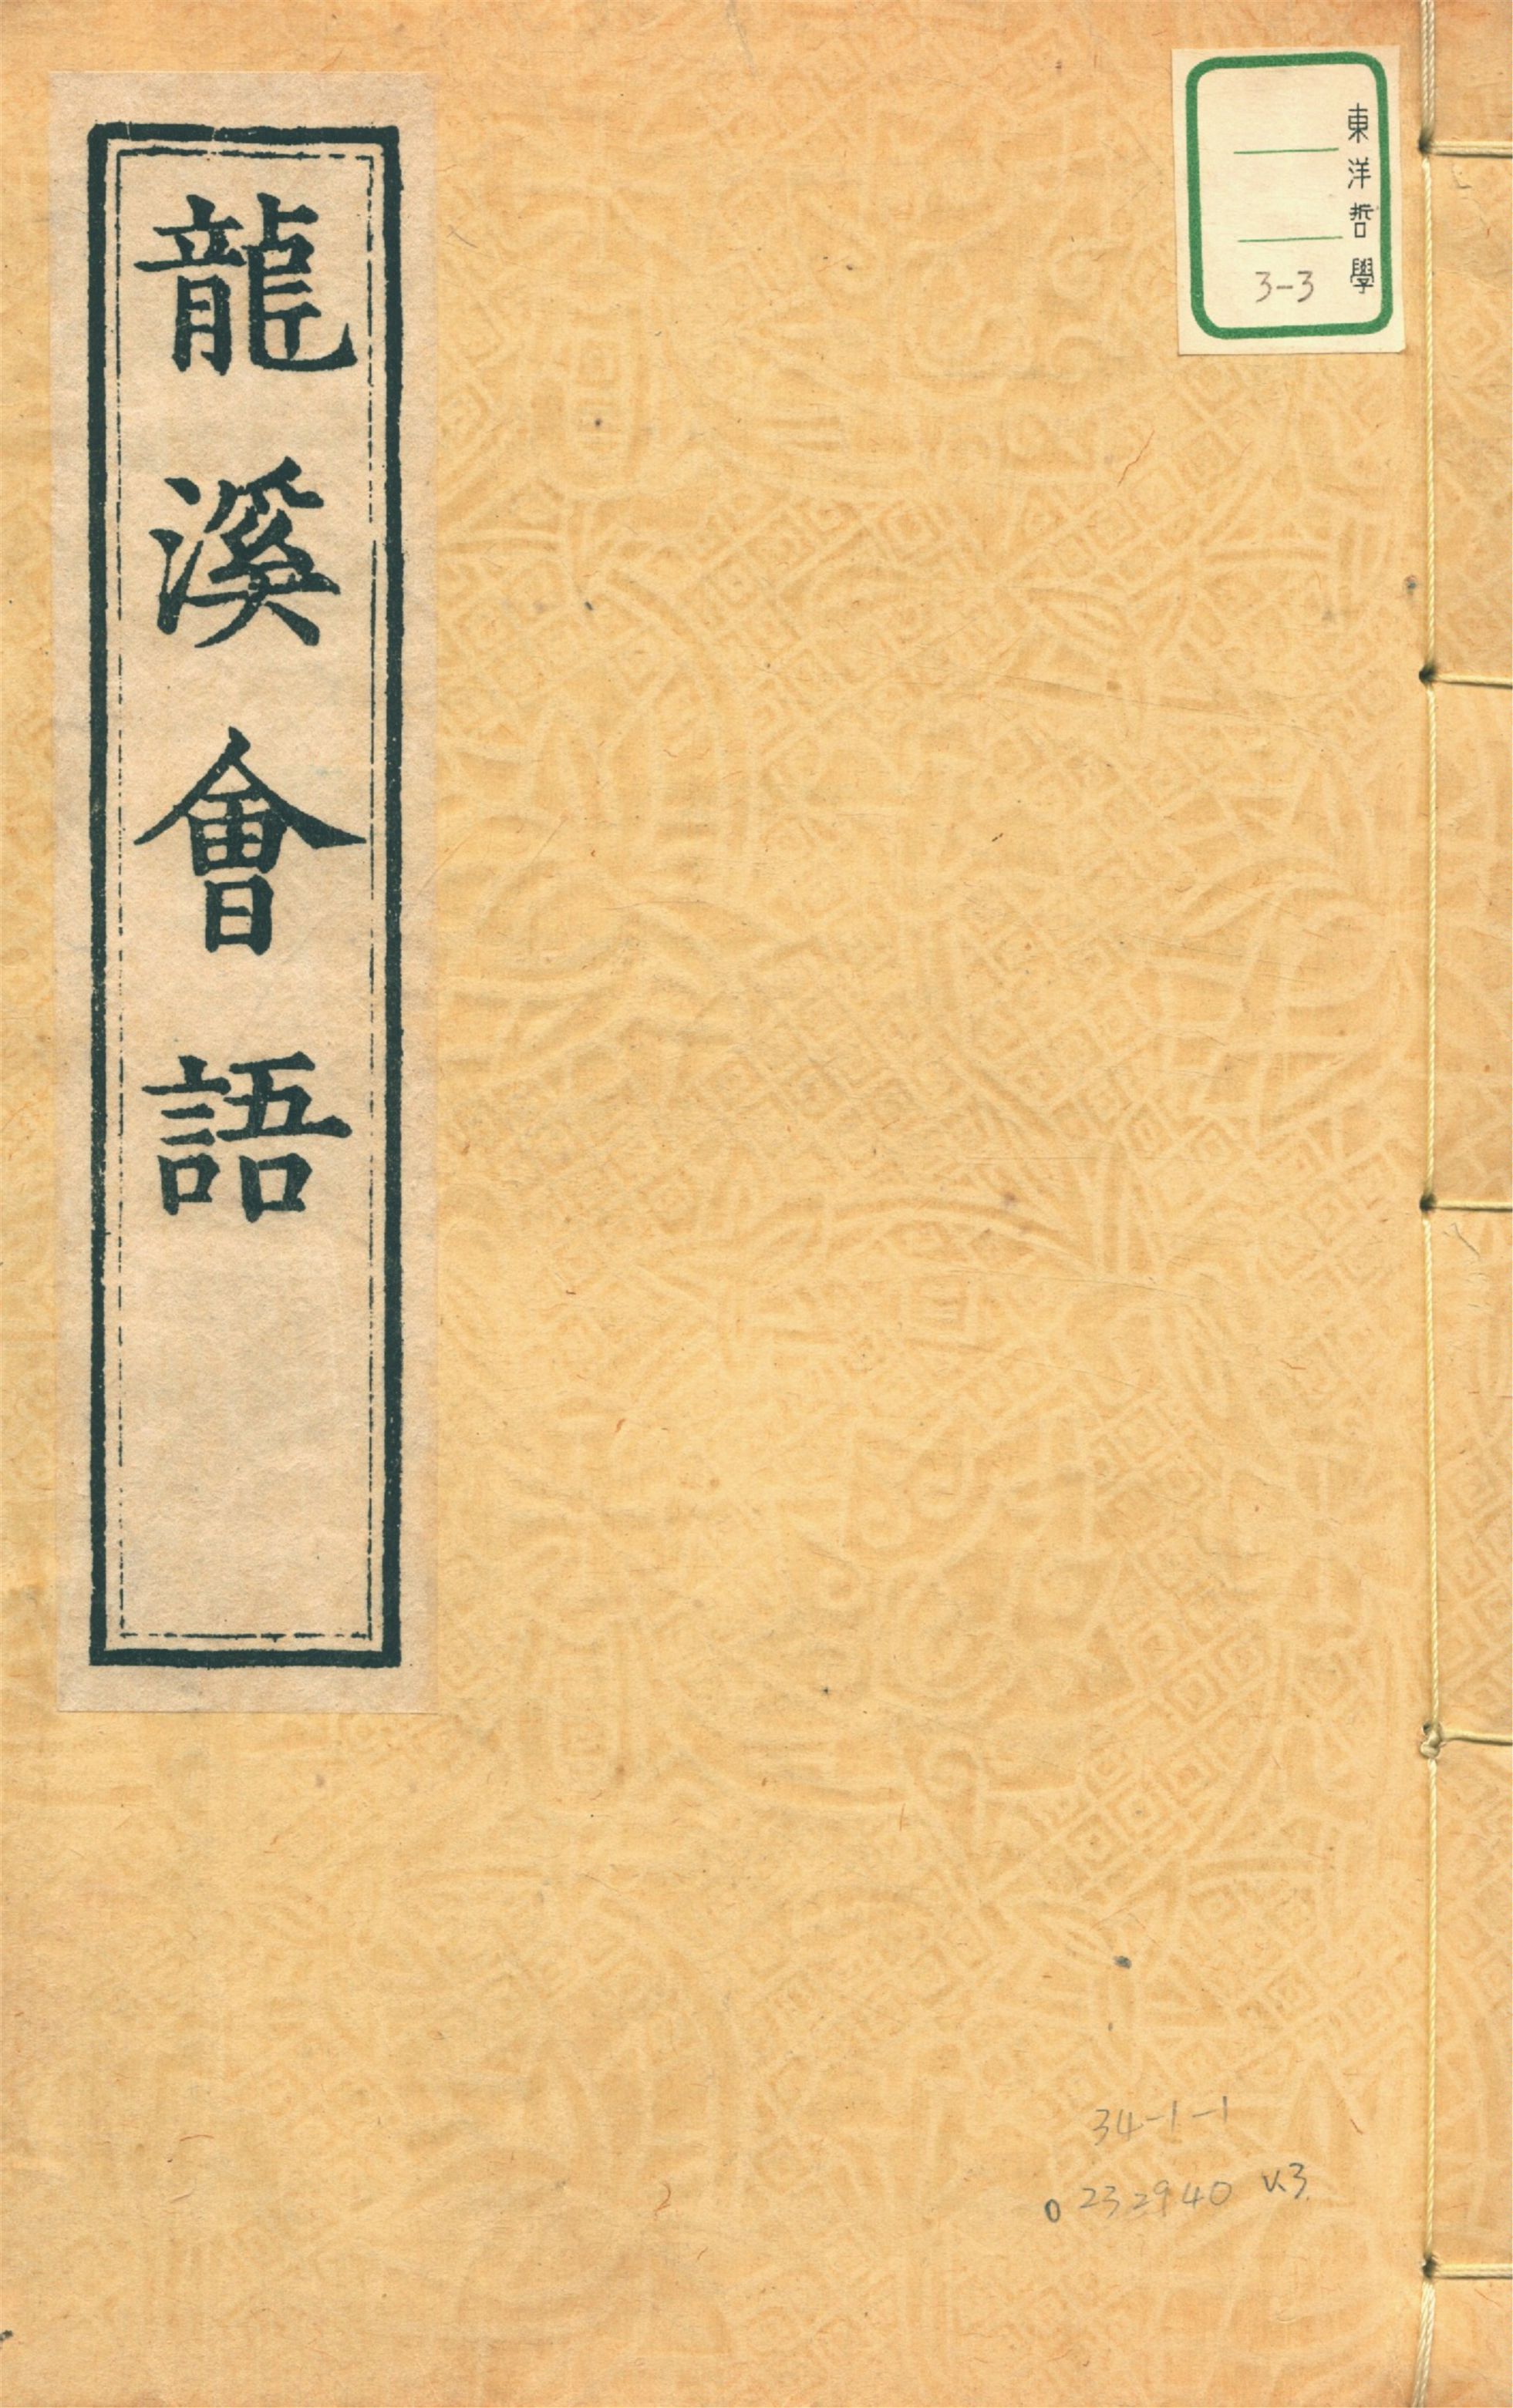 龍溪會語
東洋哲學
3-3
34-1-1
0232940 v.3